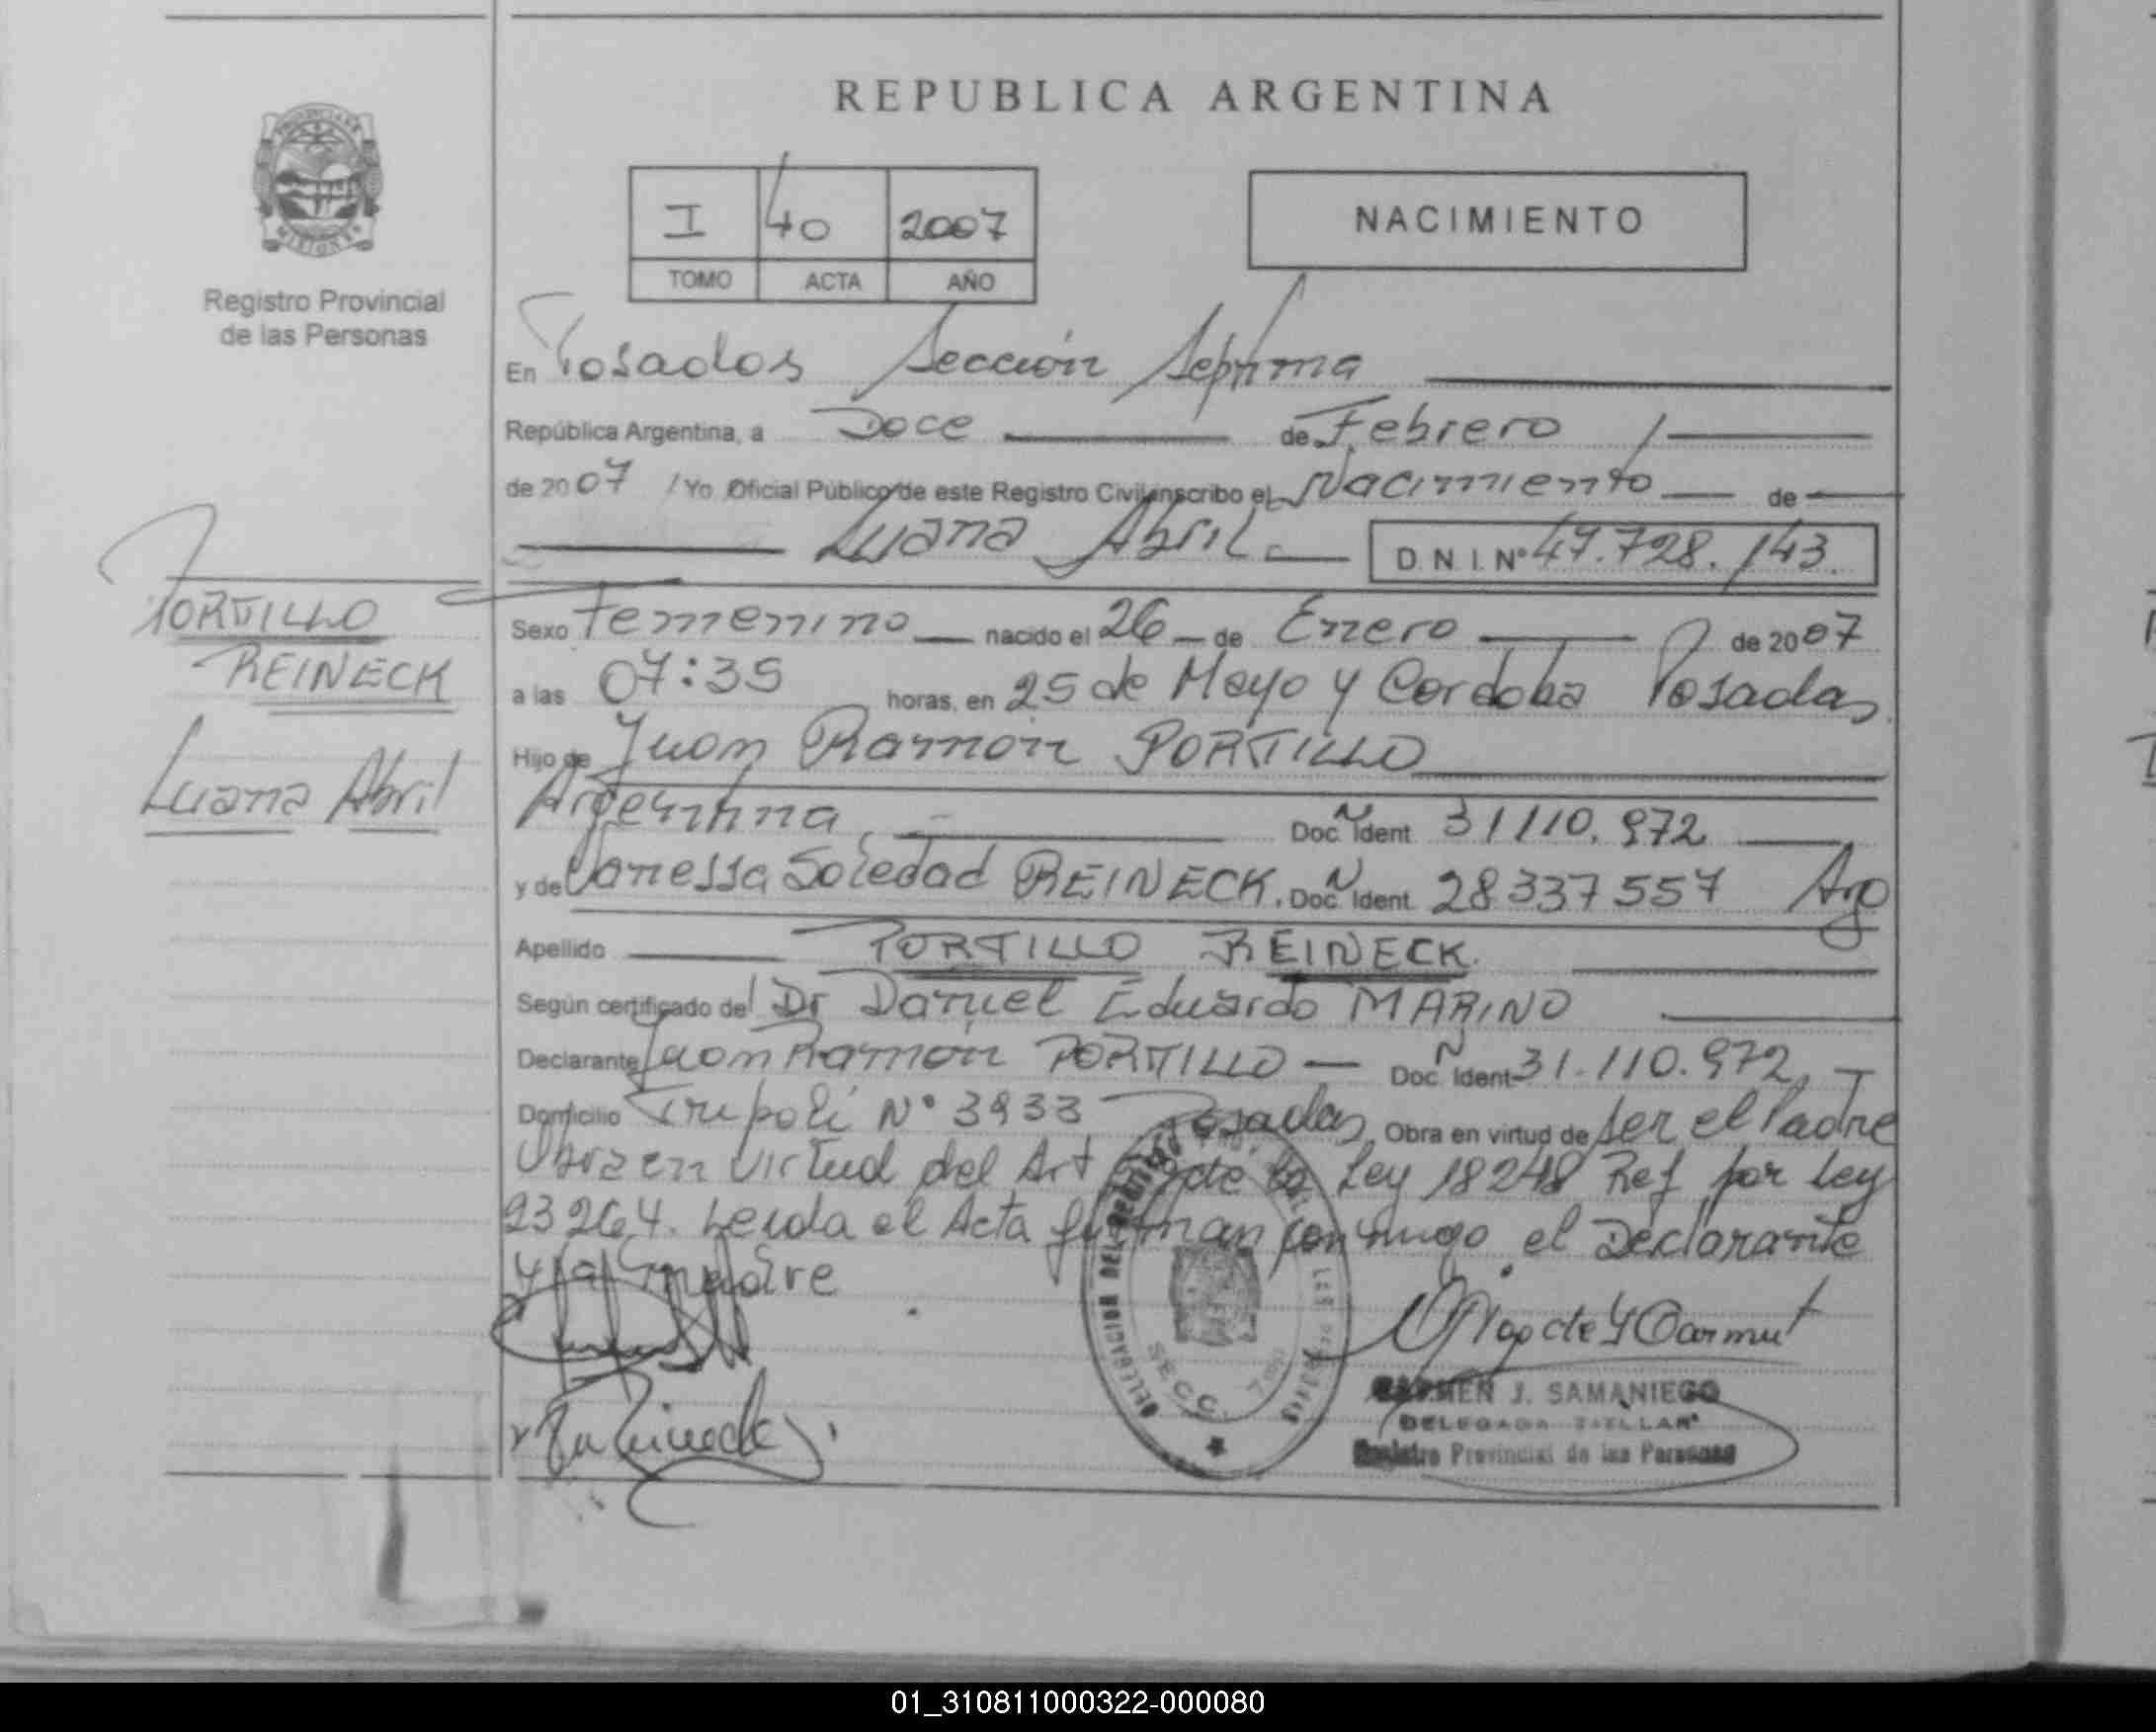 REPUBLICA ARGENTINA
I 40 2007
TOMO ACTA AÑO
NACIMIENTO
Registro Provincial
de las Personas
En Posadas Sección Séptima
República Argentina, a Doce de Febrero
de 2007 Yo Oficial Público de este Registro Civil inscribo el Nacimiento de
Luana Abril D.N.I. Nº 47.728.143.
PORTILLO
REINECK
Luana Abril
Sexo Femenino nacido el 26 de Enero de 2007
a las 07:35 horas, en 25 de Mayo y Cordoba Posadas
Hijo de Juan Ramon PORTILLO
Argentina Doc. Ident. 31110.972
y de Vanessa Soledad REINECK. Doc. Ident. 28337557 Arg
Apellido PORTILLO REINECK.
Según certificado del Dr Daniel Eduardo MARINO
Declarante Juan Ramón PORTILLO Doc. Ident. 31.110.972,
Domicilio Tripoli Nº 3933 Posadas Obra en virtud de ser el Padre
Obra en virtud del Art de la Ley 18248 Ref por Ley
23264. Leida el Acta firman conmigo el Declarante
y la madre
DELEGACION DEL REGISTRO
SECC.
CARMEN J. SAMANIEGO
DELEGADA TITULAR
Registro Provincial de las Personas
01_310811000322-000080